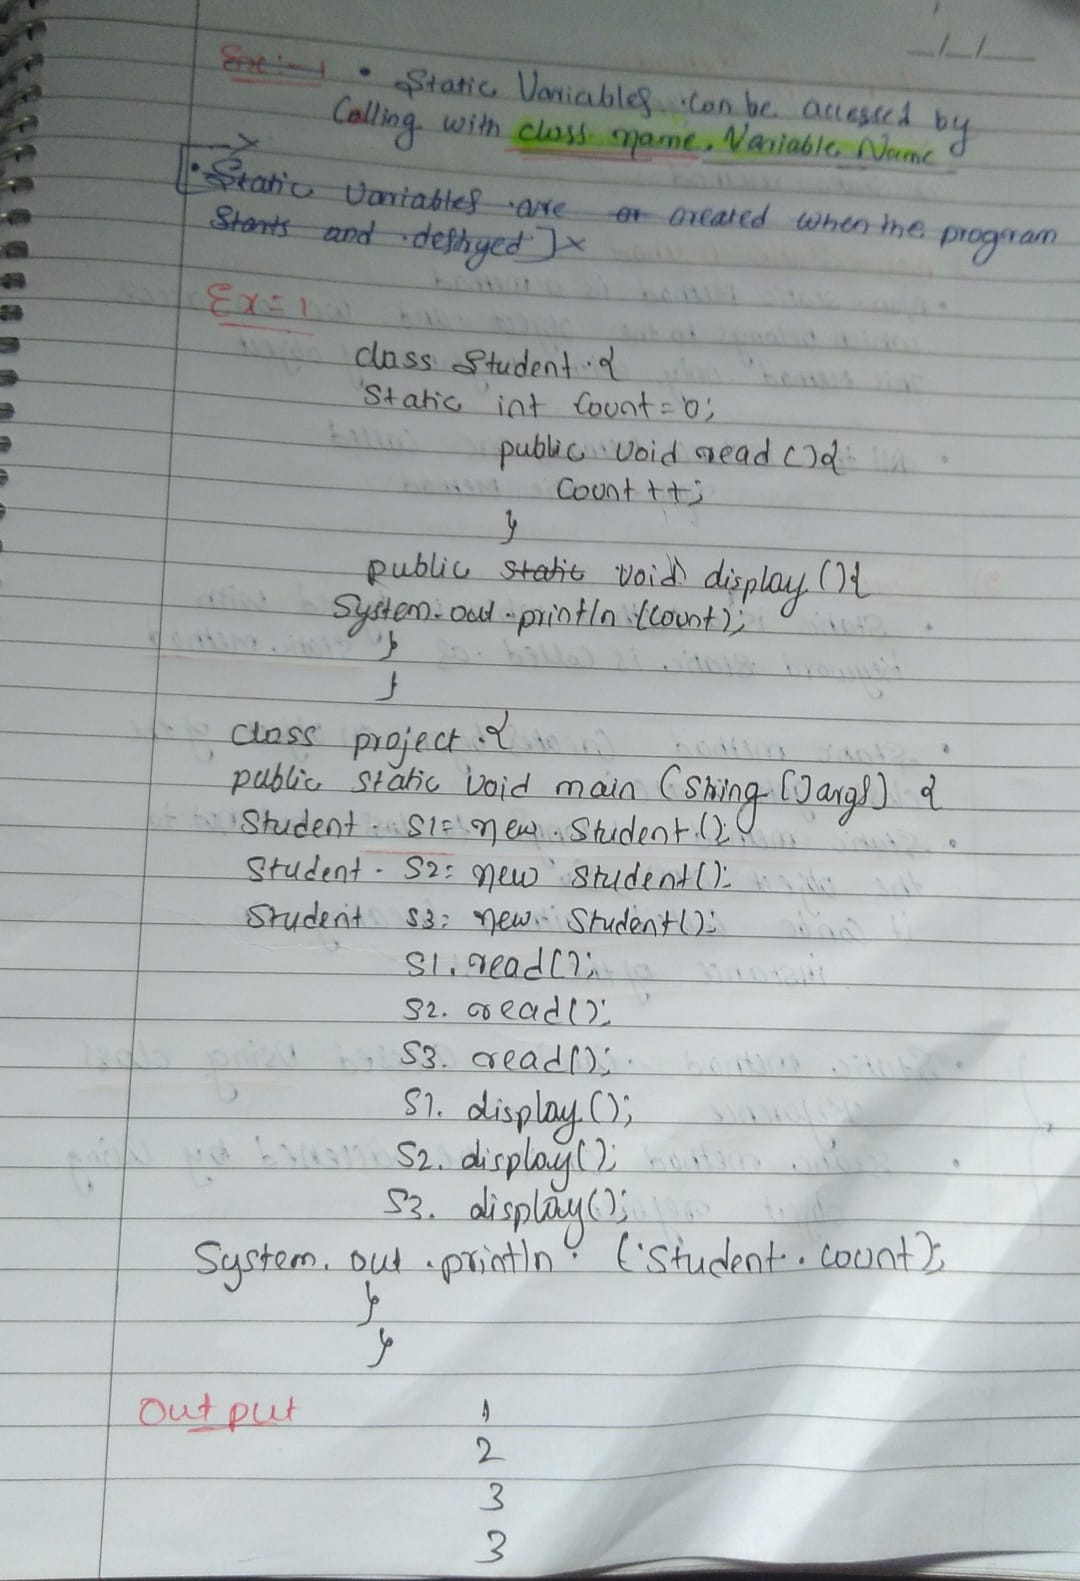 • Static Variables can be accessed by
Calling with class name. Variable Name
[• Static Variables are or created when the program
Starts and destryed ]x
Ex=1
class Student {
Static int Count=0;
public void read () {
Count ++;
}
public static void display () {
System.out.println (Count);
}
}
Class project {
public static void main (String [] args) {
Student S1= new Student ();
Student S2= new Student ();
Student S3= new Student ();
S1. read ();
S2. read ();
S3. read ();
S1. display ();
S2. display ();
S3. display ();
System. out .println (Student . count);
}
}
Output
1
2
3
3